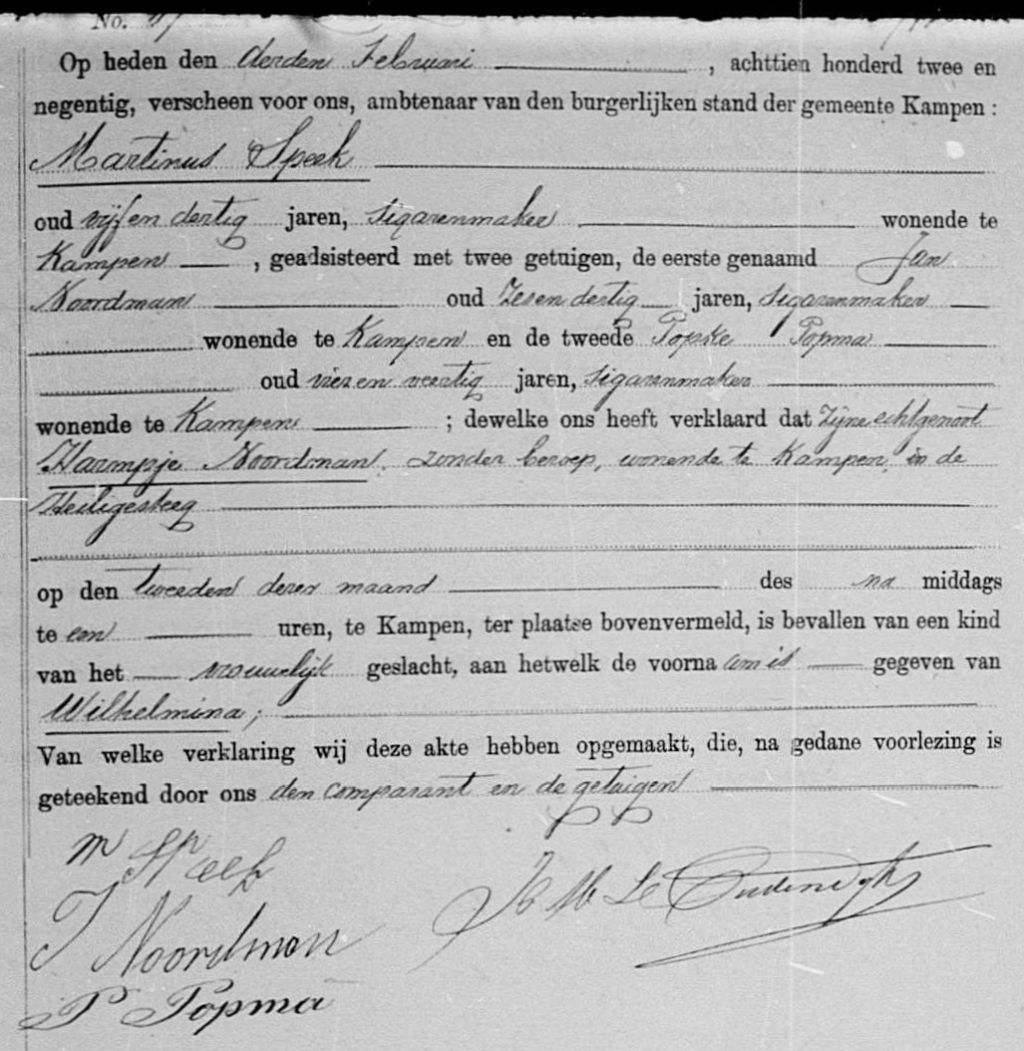 No.
Op heden den derden Februari, achttien honderd twee en
negentig, verscheen voor ons, ambtenaar van den burgerlijken stand der gemeente Kampen :
Martinus Speek
oud vijf en dertig jaren, sigarenmaker wonende te
Kampen, geadsisteerd met twee getuigen, de eerste genaamd Jan
Noordman oud zes en dertig jaren, sigarenmaker
wonende te Kampen en de tweede Popma
oud vier en veertig jaren, sigarenmaker
wonende te Kampen ; dewelke ons heeft verklaard dat zijne echtgenoot
Harmpje Noordman, zonder beroep, wonende te Kampen, in de
Heiligesteeg
op den tweeden dezer maand des na middags
te een uren, te Kampen, ter plaatse bovenvermeld, is bevallen van een kind
van het vrouwelijk geslacht, aan hetwelk de voornaam is gegeven van
Wilhelmina ;
Van welke verklaring wij deze akte hebben opgemaakt, die, na gedane voorlezing is
geteekend door ons den comparant en de getuigen
M Speek
J Noordman
P Popma